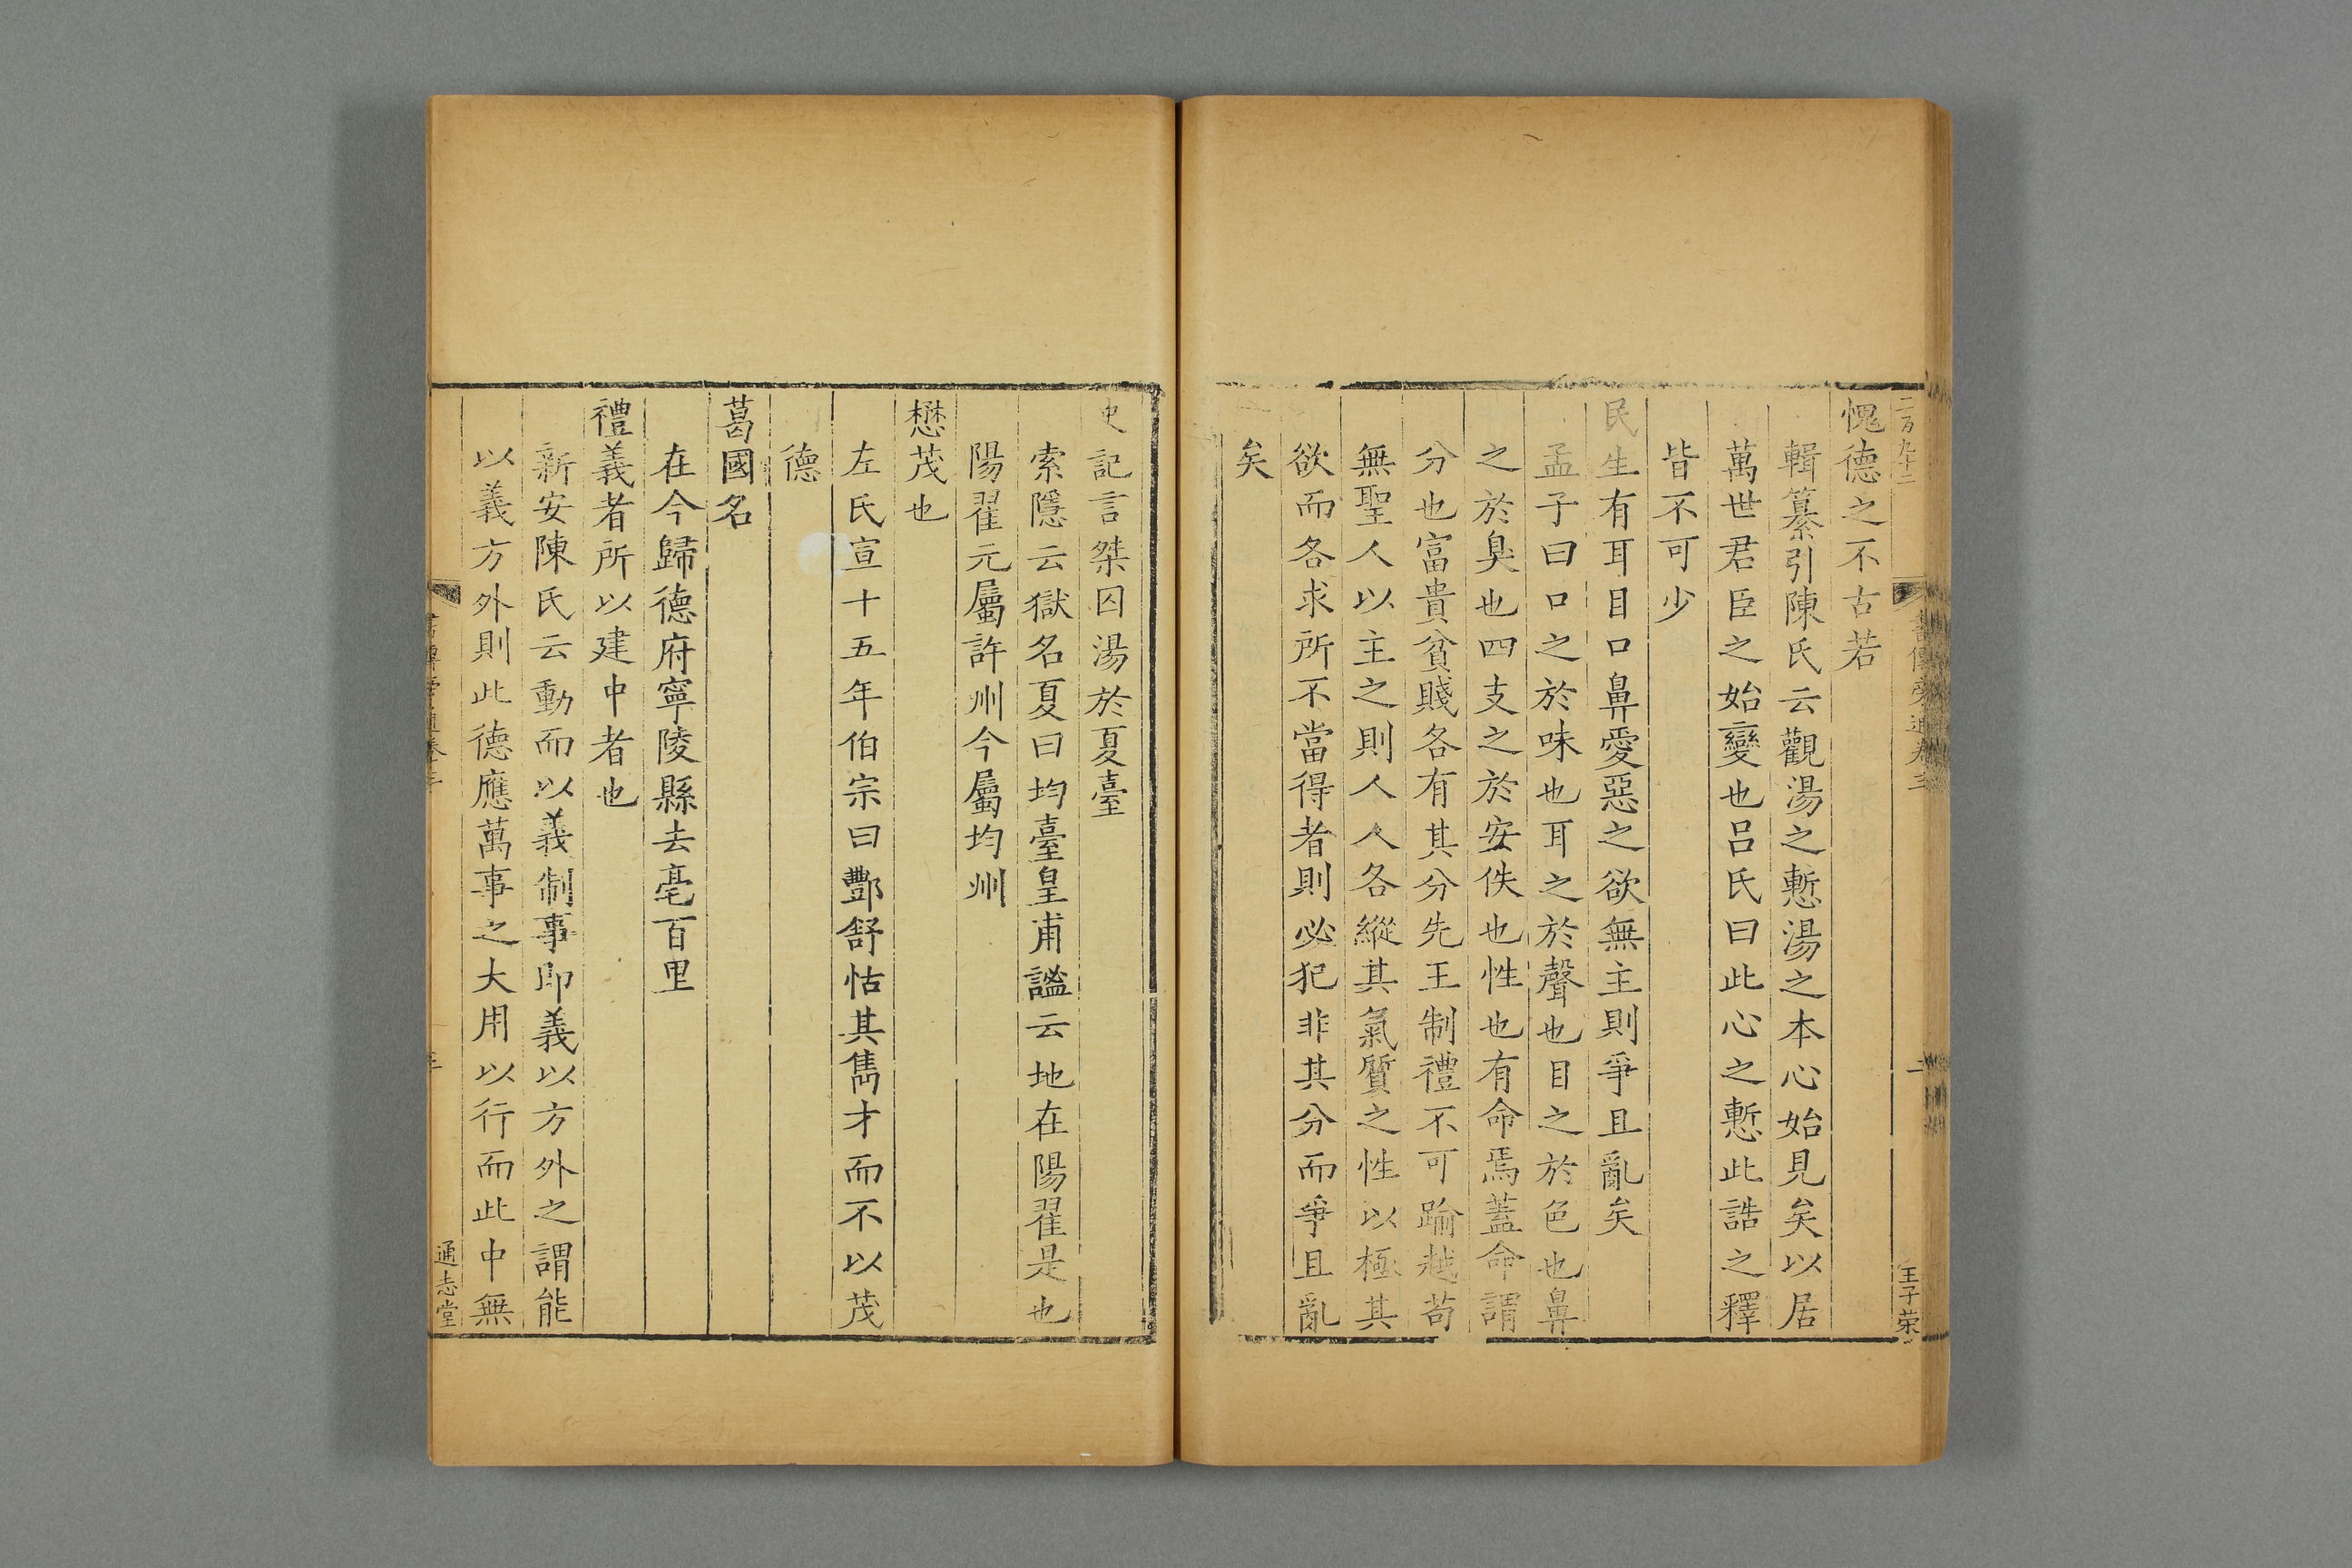 二百九十二
書傳旁通卷三
二
王子榮
愧德之不古若
輯纂引陳氏云觀湯之慙湯之本心始見矣以居
萬世君臣之始變也呂氏曰此心之慙此誥之釋
皆不可少
民生有耳目口鼻愛惡之欲無主則爭且亂矣
孟子曰口之於味也耳之於聲也目之於色也鼻
之於臭也四支之於安佚也性也有命焉蓋命謂
分也富貴貧賤各有其分先王制禮不可踰越苟
無聖人以主之則人人各縱其氣質之性以極其
欲而各求所不當得者則必犯非其分而爭且亂
矣
史記言桀囚湯於夏臺
索隱云獄名夏曰均臺皇甫謐云地在陽翟是也
陽翟元屬許州今屬均州
懋茂也
左氏宣十五年伯宗曰酆舒怙其雋才而不以茂
德
葛國名
在今歸德府寧陵縣去亳百里
禮義者所以建中者也
新安陳氏云動而以義制事即義以方外之謂能
以義方外則此德應萬事之大用以行而此中無
通志堂